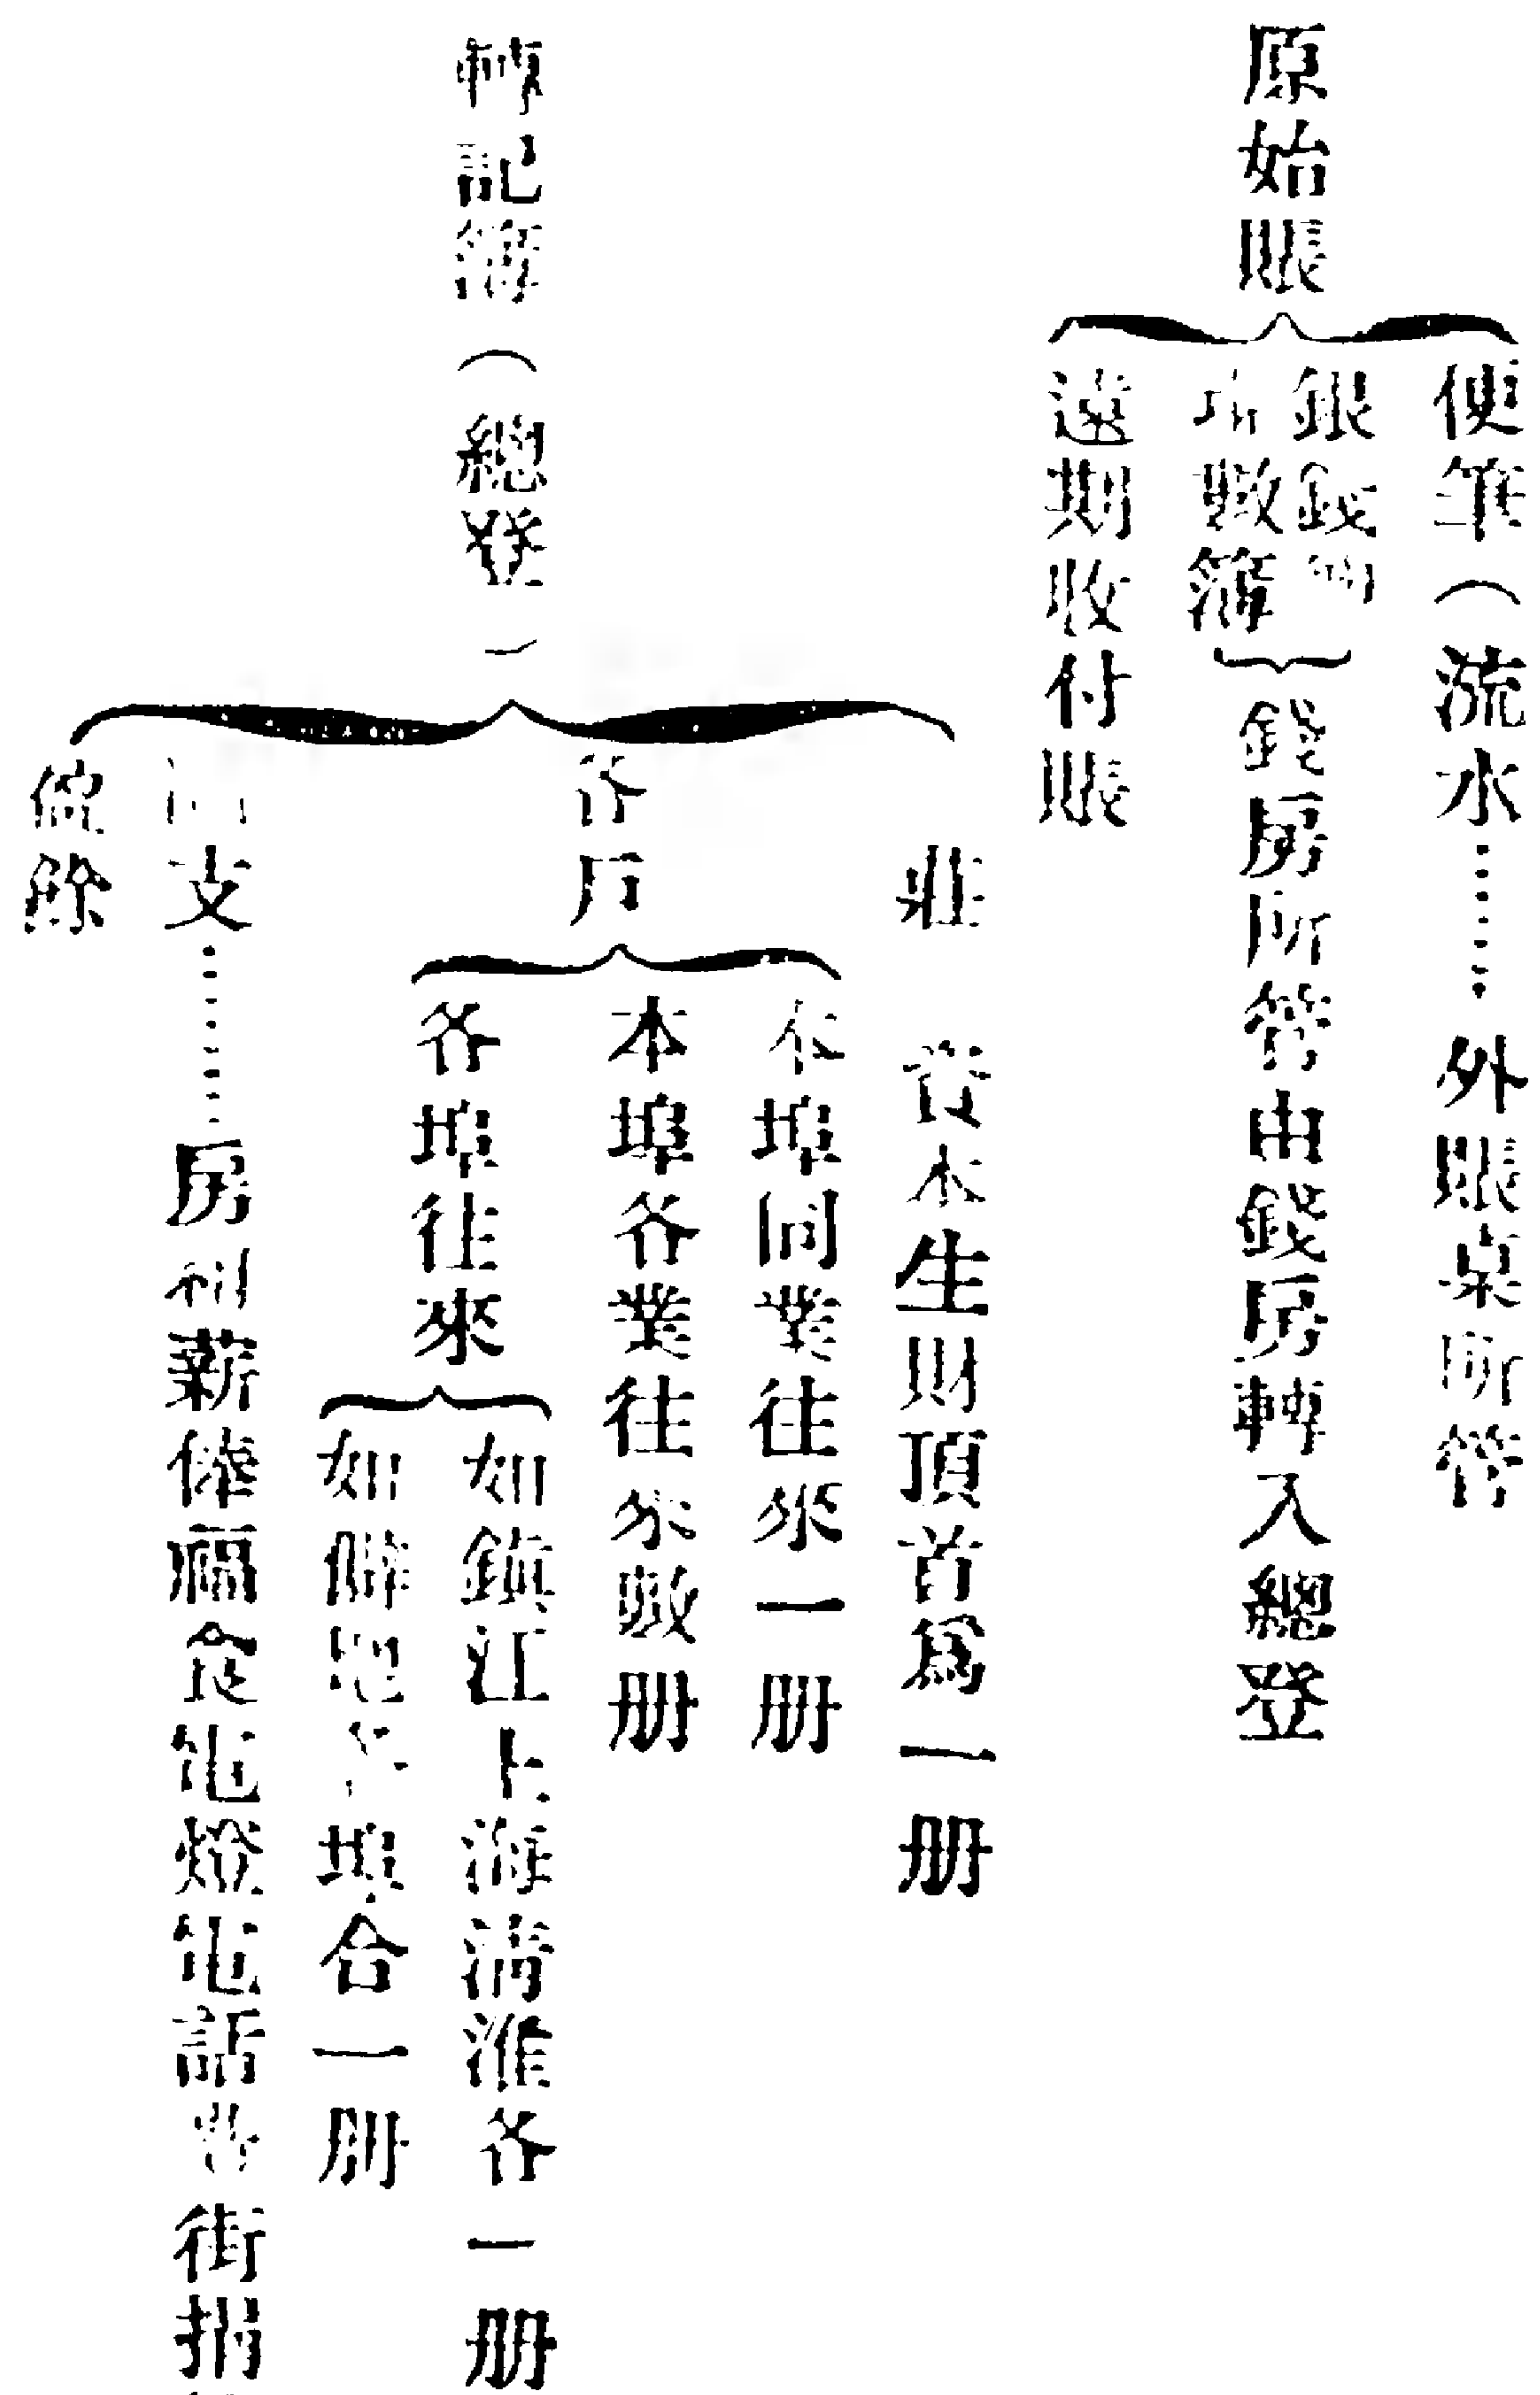 原始賬
使筆（流水……外賬桌所管
銀錢
數簿
錢房所管由錢房轉入總登
遠期收付賬
轉記簿（總登）
莊 資本生財頂首爲一册
各戶
本埠同業往來一册
本埠各業往來數册
各埠往來
如鎮江上海清淮各一册
如僻地埠合一册
支……房租薪俸福食電燈電話費街捐
餘